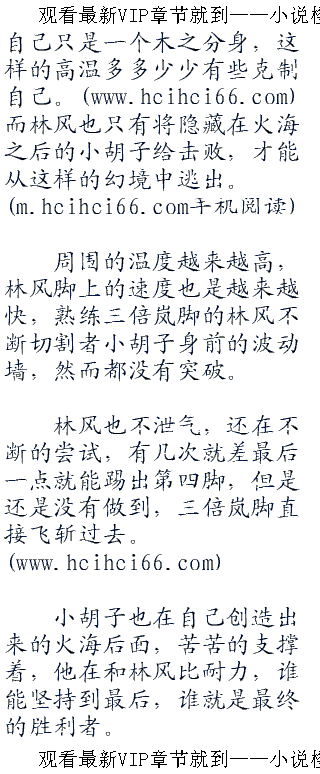 观看最新VIP章节就到——小说检
自己只是一个木之分身，这
样的高温多多少少有些克制
自己。(www.hcihci66.com)
而林风也只有将隐藏在火海
之后的小胡子给击败，才能
从这样的幻境中逃出。
(m.hcihci66.com手机阅读)
周围的温度越来越高，
林风脚上的速度也是越来越
快，熟练三倍岚脚的林风不
断切割者小胡子身前的波动
墙，然而都没有突破。
林风也不泄气，还在不
断的尝试，有几次就差最后
一点就能踢出第四脚，但是
还是没有做到，三倍岚脚直
接飞斩过去。
(www.hcihci66.com)
小胡子也在自己创造出
来的火海后面，苦苦的支撑
着，他在和林风比耐力，谁
能坚持到最后，谁就是最终
的胜利者。
观看最新VIP章节就到——小说检